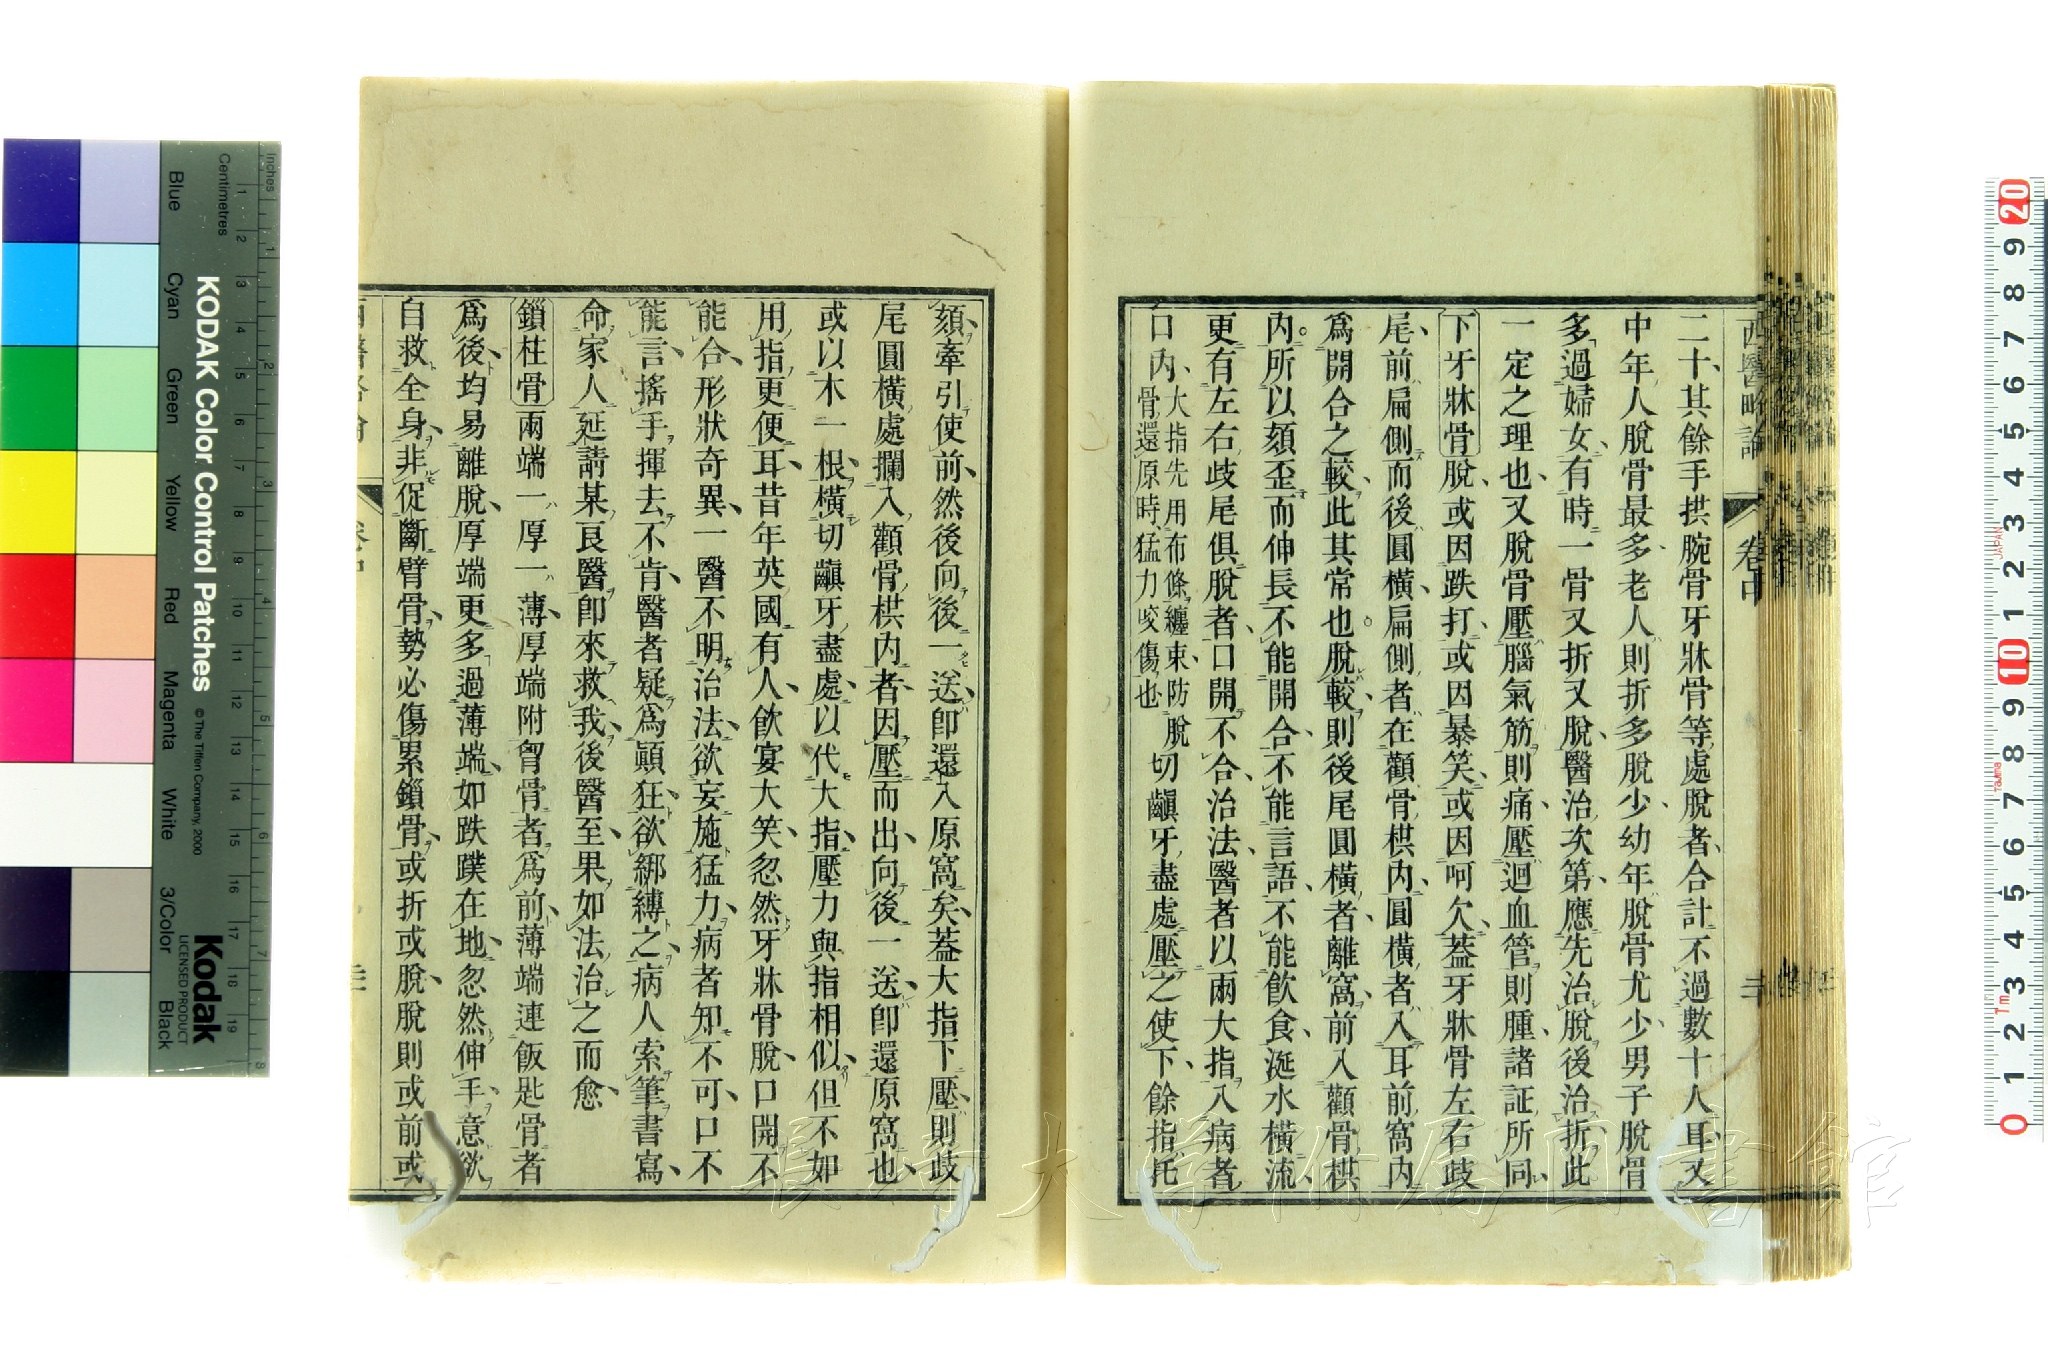 西醫略論
卷中
二十其餘手拱腕骨牙牀骨等處脫者合計不過數十人耳又
中年人脫骨最多老人則折多脫少幼年脫骨尤少男子脫骨
多過婦女有時一骨又折又脫醫治次第應先治脫後治折此
一定之理也又脫骨壓腦氣筋則痛壓迴血管則腫諸証所同
下牙牀骨脫或因跌打或因暴笑或因呵欠蓋牙牀骨左右歧
尾前扁側而後圓橫扁側者在顴骨栱內圓橫者入耳前窩內
爲開合之較此其常也脫較則後尾圓橫者離窩前入顴骨栱
內所以頦歪而伸長不能開合不能言語不能飲食涎水橫流
更有左右歧尾俱脫者口開不合治法醫者以兩大指入病者
口內大指先用布條纏束防脫骨還原時猛力咬傷也切齻牙盡處壓之使下餘指托
頦牽引使前然後向後一送卽還入原窩矣葢大指下壓則歧
尾圓橫處攔入顴骨栱內者因壓而出向後一送卽還原窩也
或以木一根橫切齻牙盡處以代大指壓力與指相似但不如
用指更便耳昔年英國有人飲宴大笑忽然牙牀骨脫口開不
能合形狀奇異一醫不明治法欲妄施猛力病者知不可口不
能言搖手揮去不肯醫者疑爲顚狂欲綁縛之病人索筆書寫
命家人延請某良醫卽來救我後醫至果如法治之而愈
鎖柱骨兩端一厚一薄厚端附胷骨者爲前薄端連飯匙骨者
爲後均易離脫厚端更多過薄端如跌蹼在地忽然伸手意欲
自救全身非促斷臂骨勢必傷累鎖骨或折或脫脫則或前或
KODAK Color Control Patches
© The Tiffen Company, 2000
Kodak
LICENSED PRODUCT
Inches
Centimetres
Blue
Cyan
Green
Yellow
Red
Magenta
White
3/Color
Black
長崎大学附属図書館